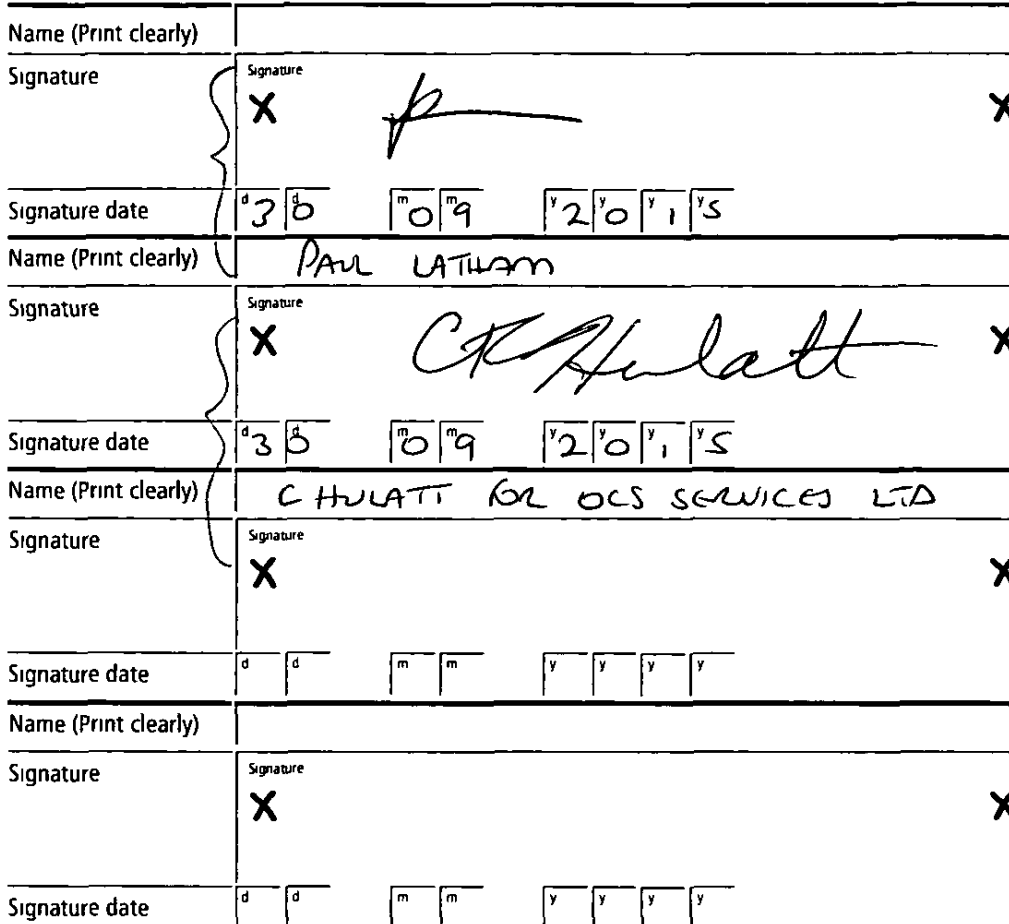 Name (Print clearly)
Signature
Signature
X X
Signature date d 3 d 0 m 0 m 9 y 2 y 0 y 1 y 5
Name (Print clearly) PAUL LATHAM
Signature
Signature
X CR Hulatt X
Signature date d 3 d 0 m 0 m 9 y 2 y 0 y 1 y 5
Name (Print clearly) C HULATT FOR OCS SERVICES LTD
Signature
Signature
X X
Signature date d d m m y y y y
Name (Print clearly)
Signature
Signature
X X
Signature date d d m m y y y y